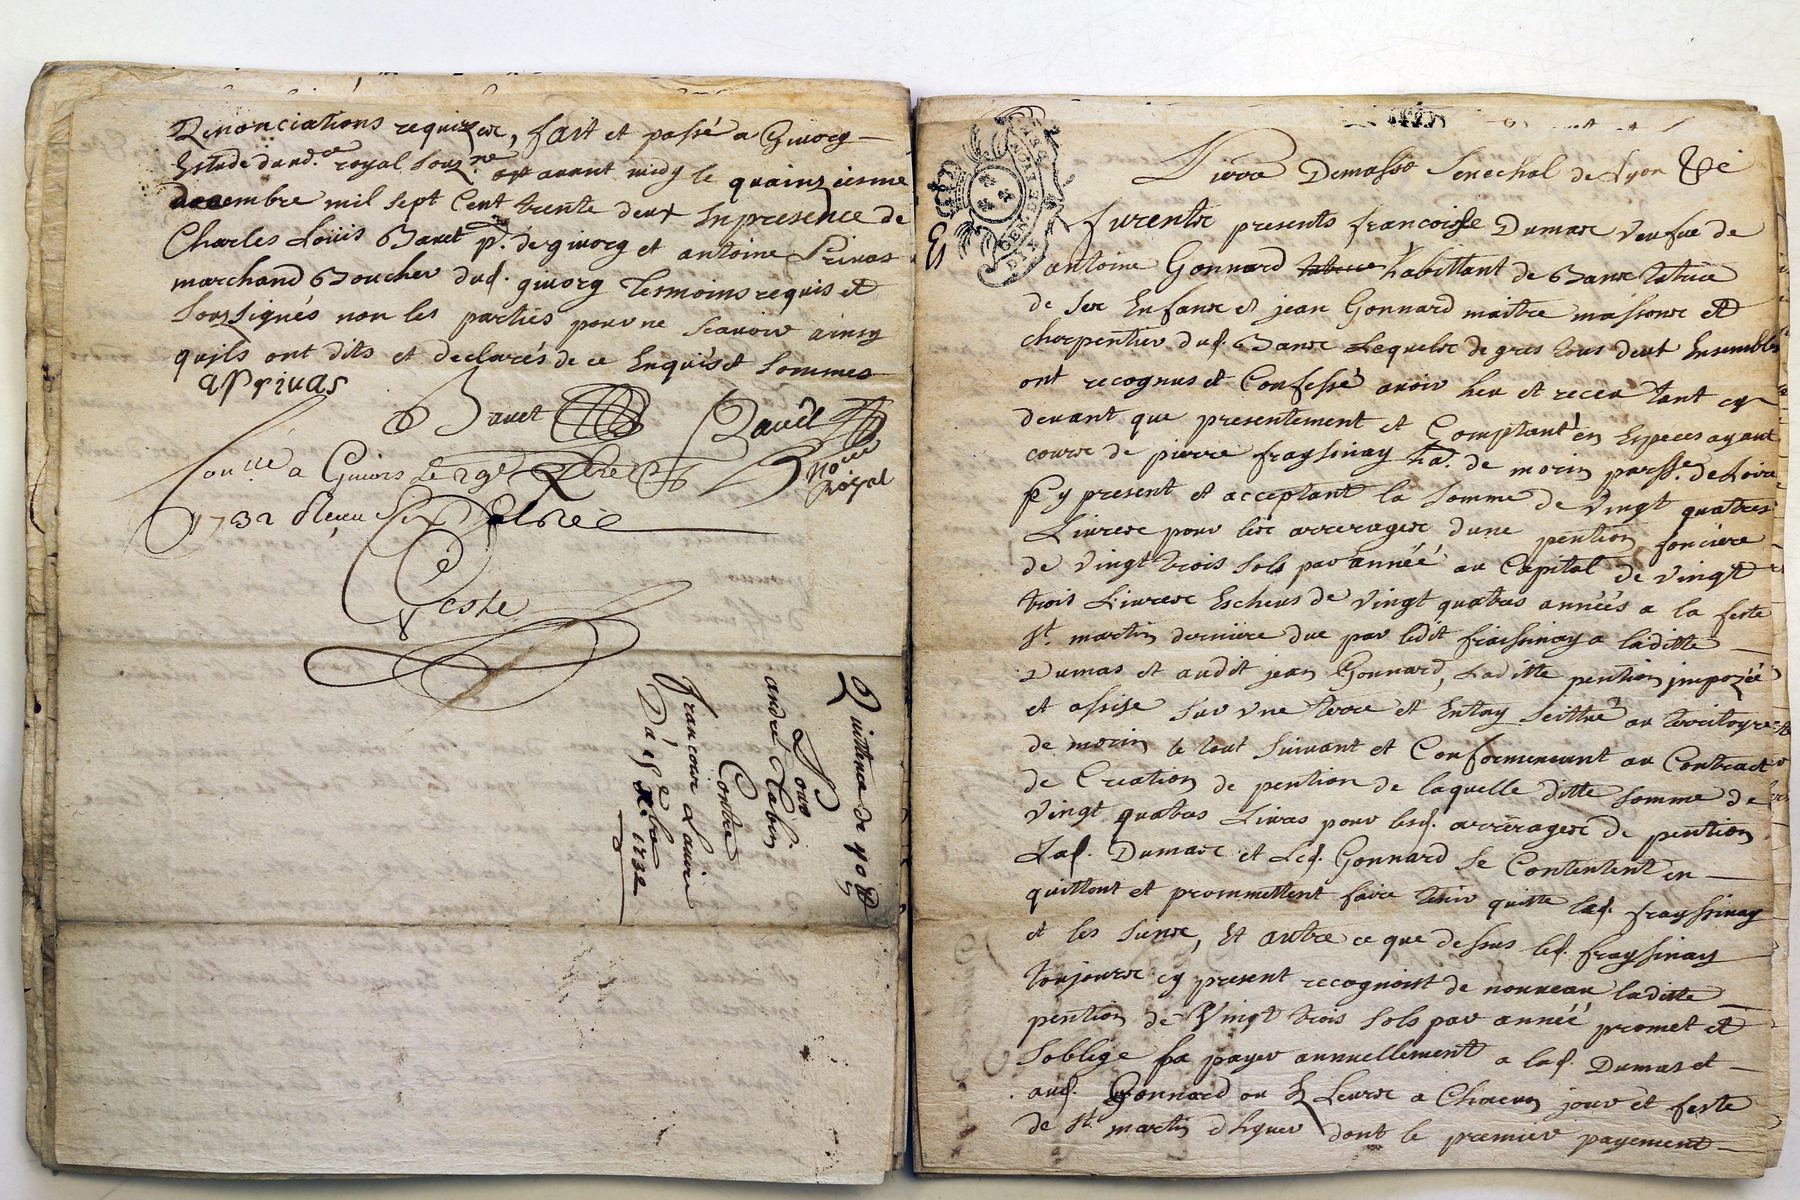 Renonciations requizes, fait et passé a Givorg
Estude dud. no.re royal sousz.né avant midy le quainziesme
decembre mil sept Cent trente deux In presence de
Charles Loüis Bavet p.r de givorg et antoine Privas
marchand Boucher dud. givorg tesmoins requis et
Soussignés non les parties pour ne scavoir ainsy
quils ont dits et declarés de ce Enquis et sommes
aPrivas
Bavet
Bavet
No.re royal
Con.llé a Givors le 29e Xbre
1732 Receu six
Coste
Quittance de 90 ₶
Pour
andré
Contre
francoise
Du 15e Xbre 1732
GEN. DE LYON
Pierre Demasso Senechal de Lyon &c
furentz presents francoisse Dumas veufve de
antoine Gonnard habittant de Bans tutrice
de ses Enfans et jean Gonnard maitre massons et
charpentier dud. Bans Lequels de gres tous deux Ensembles
ont recognus et Confessé avoir heu et receu tant cy
devant que presentement et Comptant en Especes ayant
cours de pierre frayssinay ha. de morin parss.e de Loire
cy present et acceptant la somme de Vingt quatres
Livres pour les arrerages dune pention fonciere
de Vingt trois sols par année au Capital de Vingt
trois Livres Escheus de Vingt quatres années a la feste
St. martin derniere due par ledit fraissinay a laditte
Dumas et audit jean Gonnard, Laditte pention jmpozée
et assise sur vne terre et Entay scittué au territoyre
de morin le tout suivant et Conformement au Contract
de Creation de pention de laquelle ditte somme de
Vingt quatres Livres pour lesd. arrérages de pention
Lad. Dumas et Led. Gonnard se Contentent en
quittont et prommettent faire tenir quitte led. frayssinay
et les siens, Et outre ce que dessus led. frayssinay
toujours cy present recognoist de nouveau laditte
pention de Vingt trois sols par année promet et
soblige la payer annuellement a lad. Dumas et
aud. Gonnard ou Es Leurs a Chacun jour et feste
de St. martin dhyver dont le premier payement